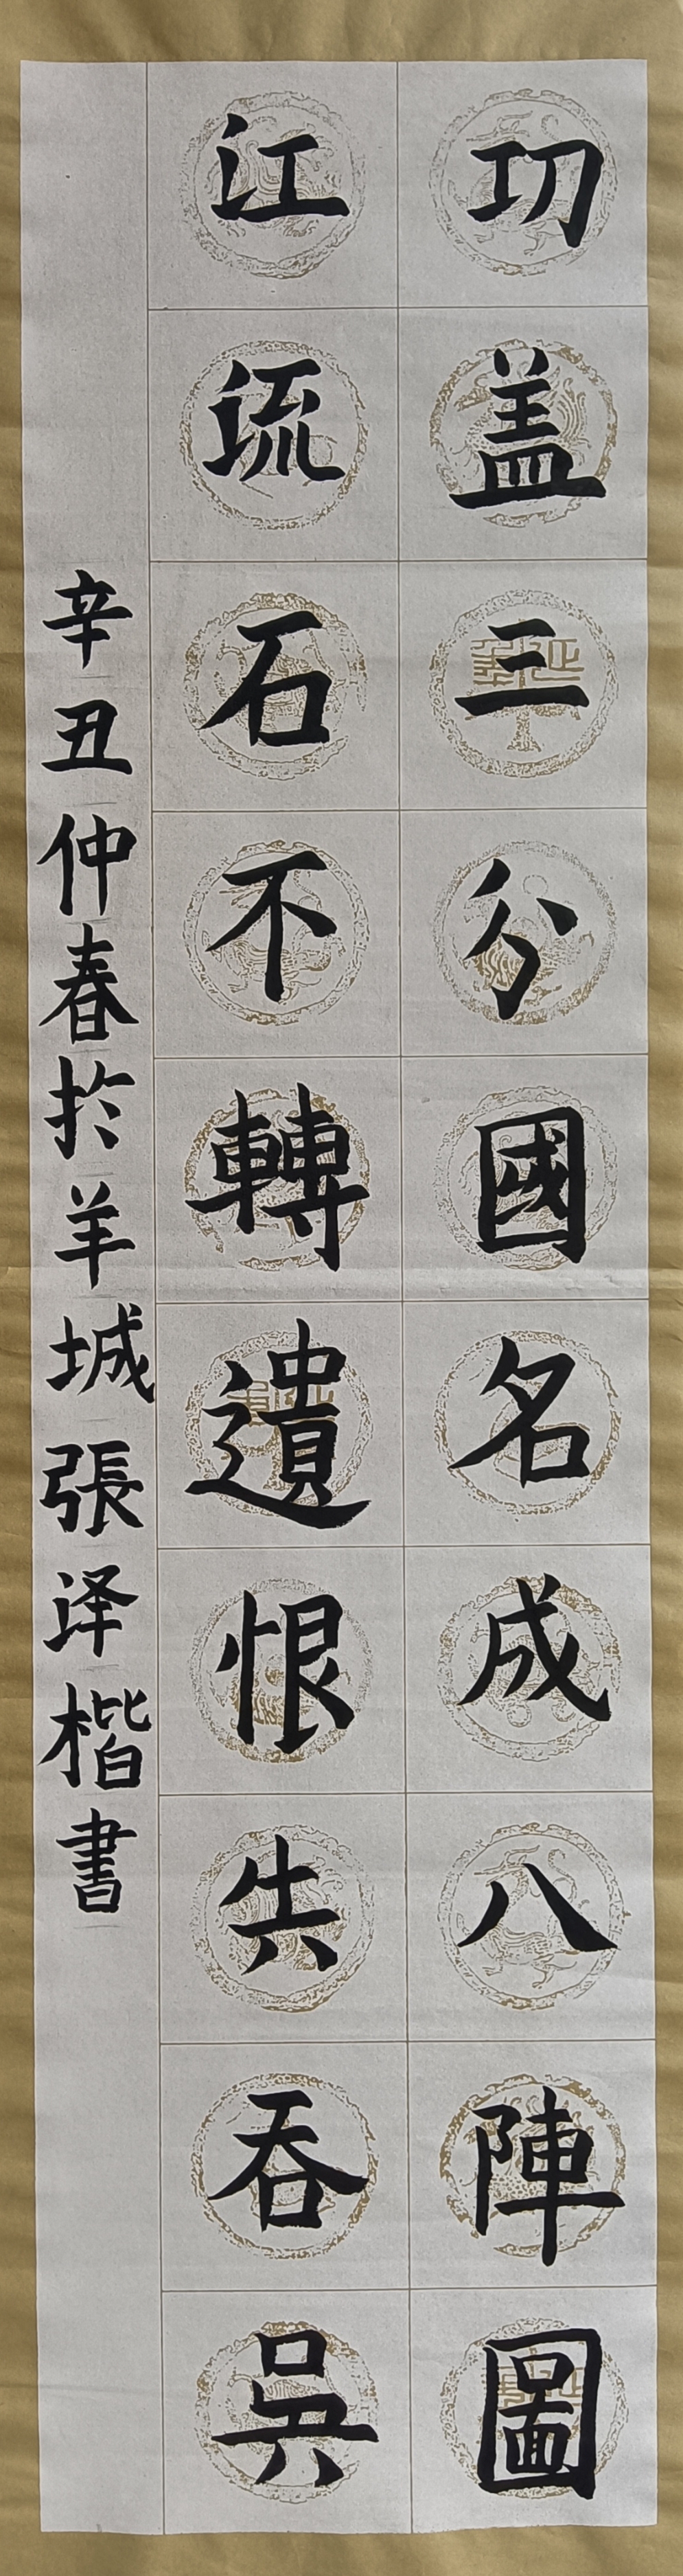 功盖三分國名成八陣圖
江流石不轉遺恨失吞吳
辛丑仲春於羊城張泽楷書